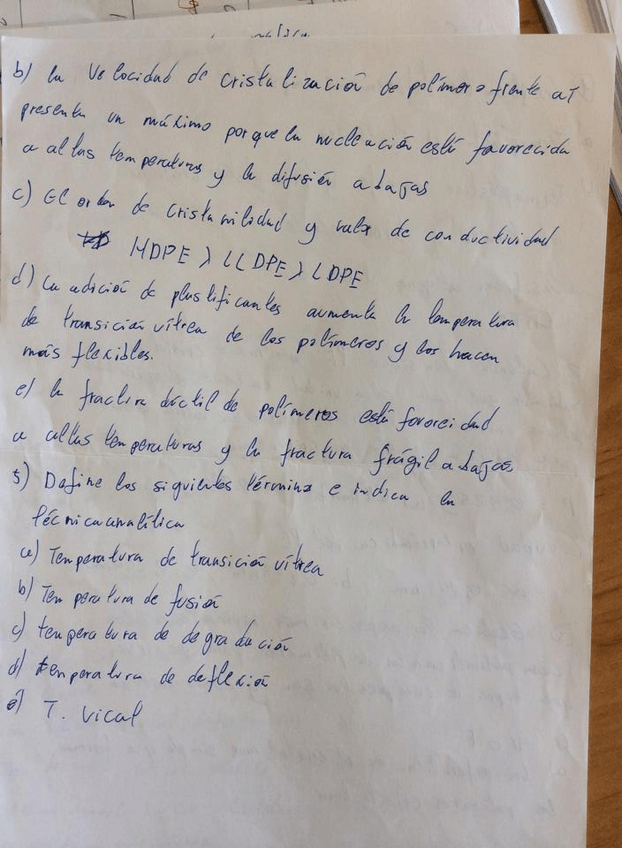 b) La Velocidad de cristalización de polímeros frente a T
presenta un máximo porque la nucleación está favorecida
a altas temperaturas y la difusión a bajas
c) El orden de cristanilidad y valor de conductividad
HDPE > LLDPE > LDPE
d) La adición de plastificantes aumenta la temperatura
de transición vítrea de los polímeros y los hacen
más flexibles.
e) la fractura dúctil de polímeros está favorecidad
a altas temperaturas y la fractura frágil a bajas
5) Define los siguientes términos e indica la
técnica analítica
a) Temperatura de transición vítrea
b) Temperatura de fusión
c) temperatura de degradación
d) temperatura de deflexión
e) T. Vical